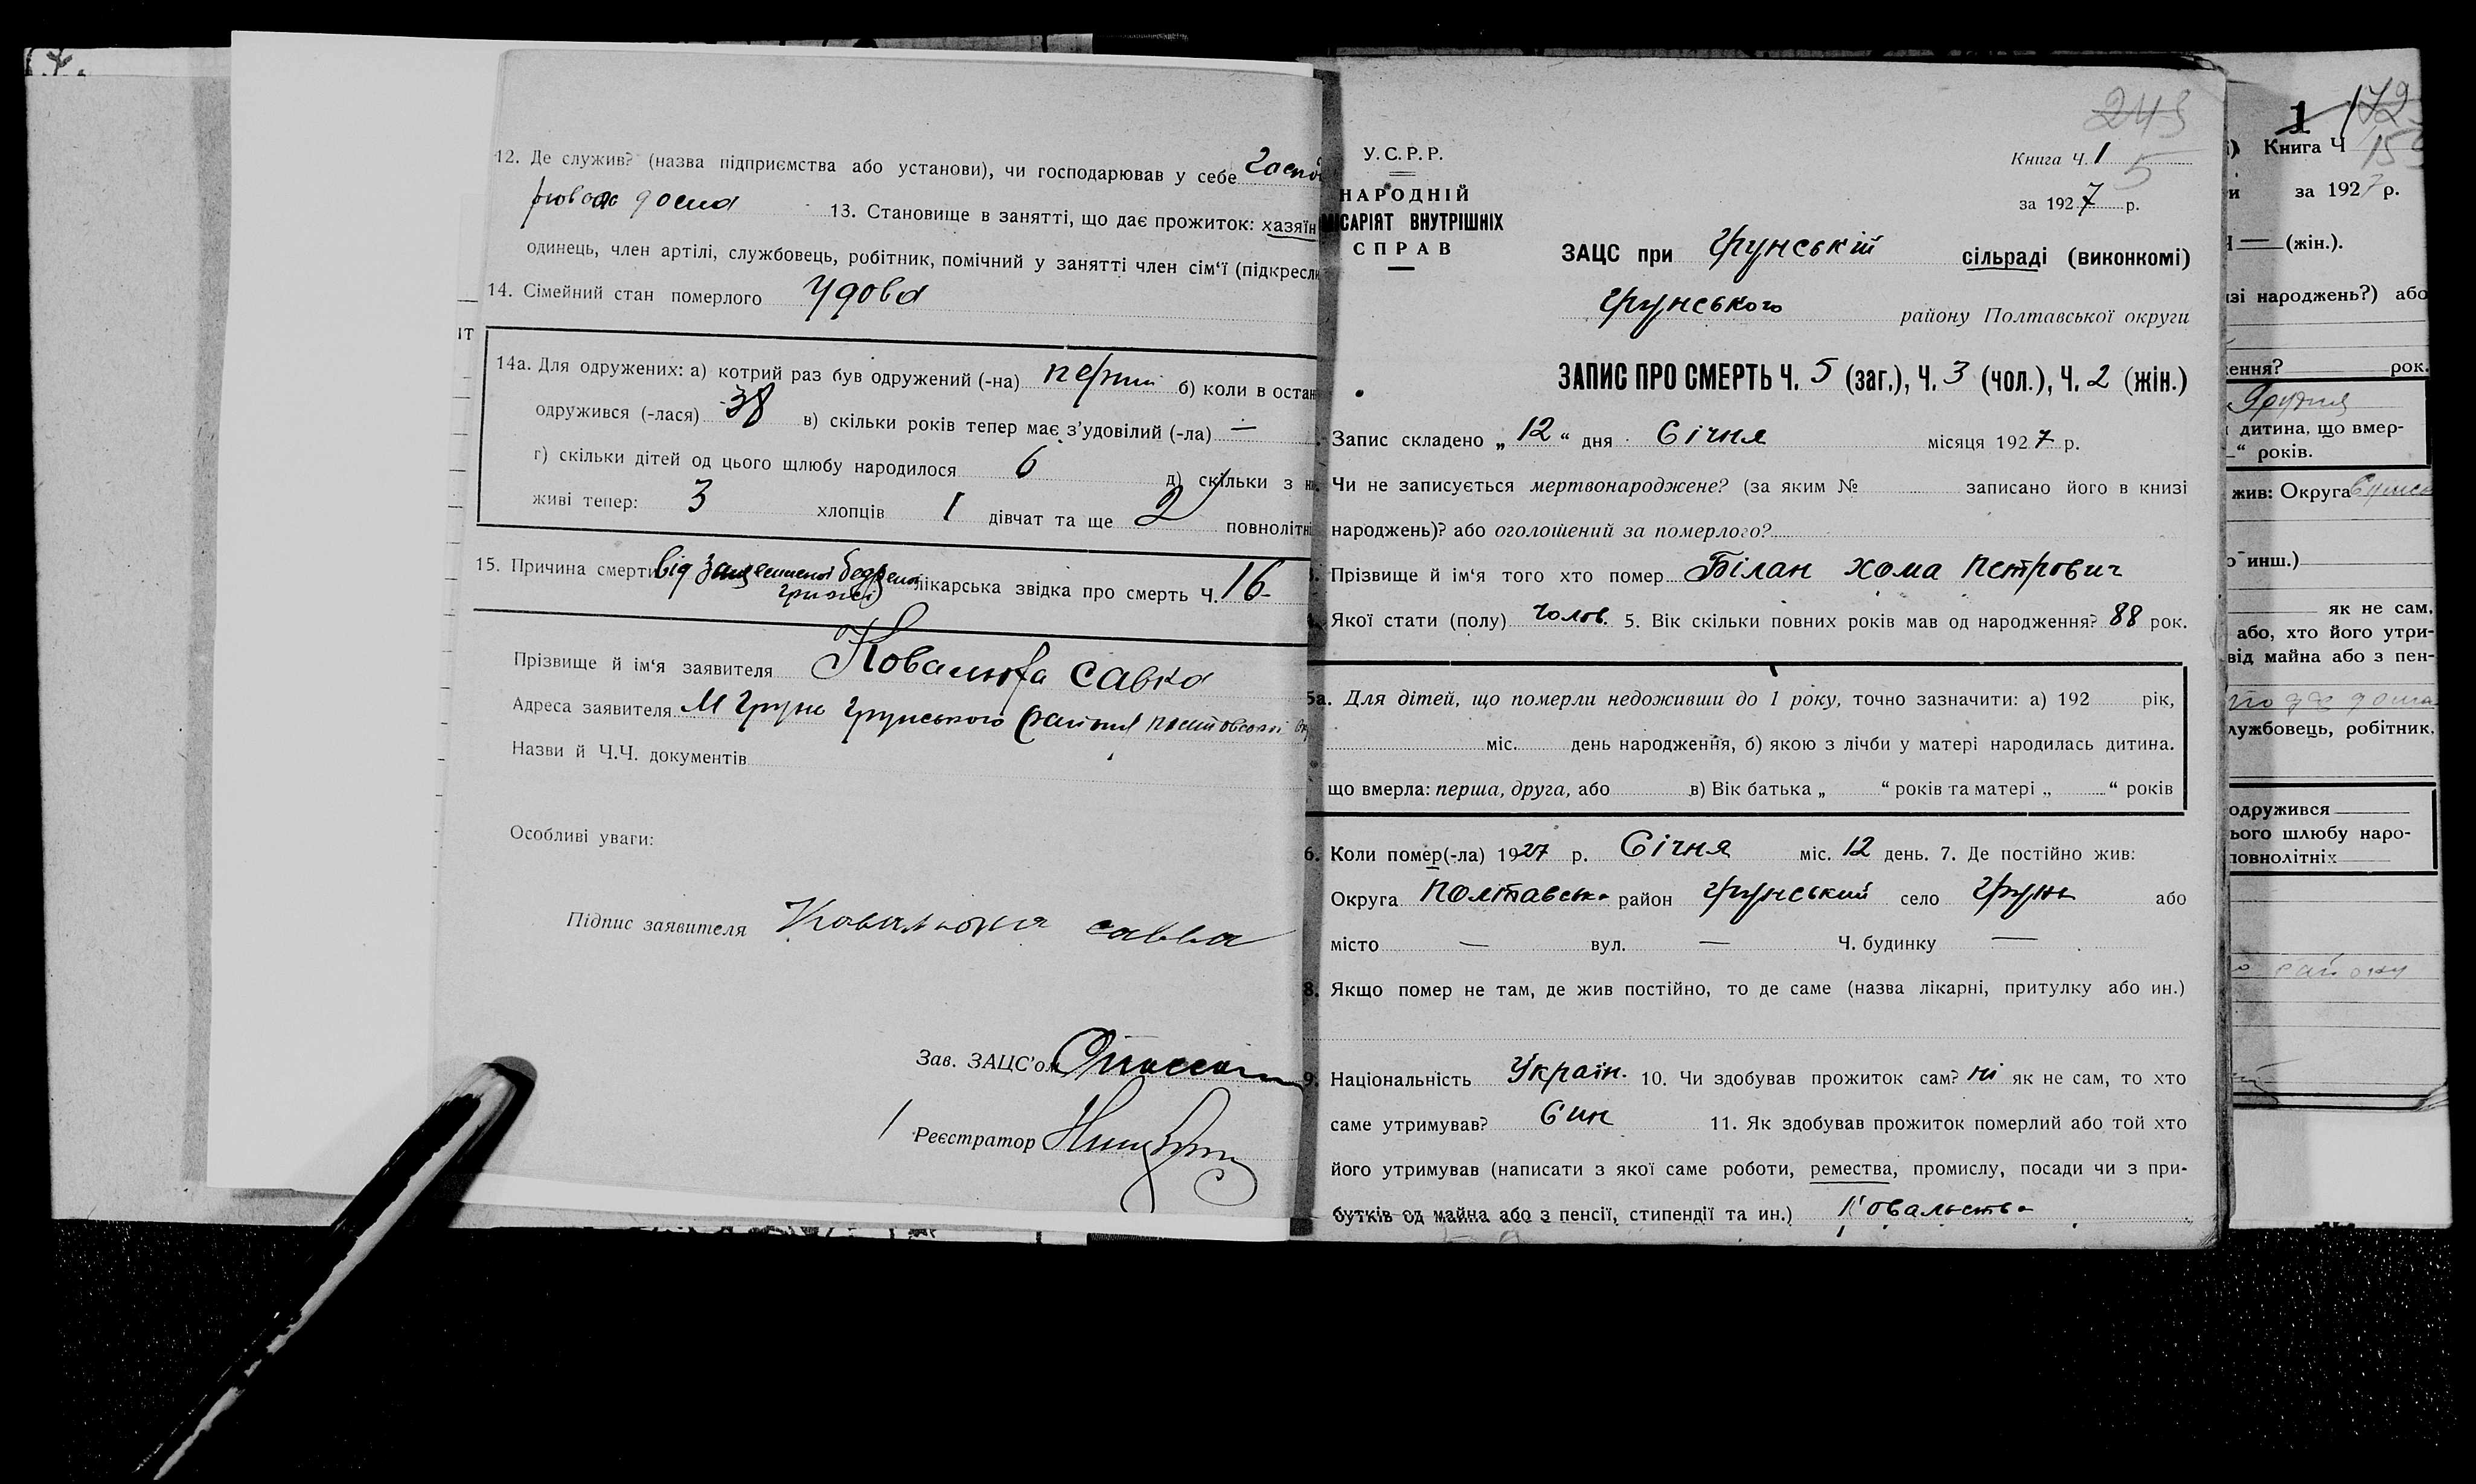 12. Де служив? (назва підприємства або установи), чи господарював у себе госпо
рював дома 13. Становище в занятті, що дає прожиток: хазяїн
одинець, член артілі, службовець, робітник, помічний у занятті член сім'ї (підкресли
14. Сімейний стан померлого Удова
14а. Для одружених: а) котрий раз був одружений (-на) перший б) коли в остан
одружився (-лася) 38 в) скільки років тепер має з'удовілий (-ла) —
г) скільки дітей од цього шлюбу народилося 6 д) скільки з н
живі тепер: 3 хлопців 1 дівчат та ще 2 повнолітні
15. Причина смерти від защемленої бедреної лікарська звідка про смерть Ч. 16
грижі
Прізвище й ім'я заявителя Савка
Адреса заявителя М Грунь Грунського района Полтавської ок
Назви й Ч.Ч. документів
Особливі уваги:
Підпис заявителя Савва
Зав. ЗАЦС'ом
Реєстратор
243
У.С.Р.Р.
НАРОДНІЙ
МІСАРІЯТ ВНУТРІШНІХ
СПРАВ
Книга Ч. 1
5
за 1927 р.
ЗАЦС при Грунській сільраді (виконкомі)
Грунського району Полтавської округи
ЗАПИС ПРО СМЕРТЬ Ч. 5 (заг.), Ч. 3 (чол.), Ч. 2 (жін.)
Запис складено „ 12 “ дня Січня місяця 1927 р.
Чи не записується мертвонароджене? (за яким № записано його в книзі
народжень)? або оголошений за померлого?
Прізвище й ім'я того хто помер Білан Хома Петрович
Якої стати (полу) чолов. 5. Вік скільки повних років мав од народження? 88 рок.
5а. Для дітей, що померли недоживши до 1 року, точно зазначити: а) 192 рік,
міс. день народження, б) якою з лічби у матері народилась дитина.
що вмерла: перша, друга, або в) Вік батька „ “ років та матері „ “ років
6. Коли помер(-ла) 1927 р. Січня міс. 12 день. 7. Де постійно жив:
Округа Полтавська район Грунський село Грунь або
місто — вул. — Ч. будинку —
8. Якщо помер не там, де жив постійно, то де саме (назва лікарні, притулку або ин.)
9. Національність Україн. 10. Чи здобував прожиток сам? ні як не сам, то хто
саме утримував? Син 11. Як здобував прожиток померлий або той хто
його утримував (написати з якої саме роботи, ремества, промислу, посади чи з при-
бутків од майна або з пенсії, стипендії та ин.) Ковальство
1 172
Книга Ч 15
за 1927 р.
— (жін.).
зі народжень?) або
ення? рок.
дитина, що вмер-
“ років.
жив: Округа Сумск
о инш.)
як не сам,
або, хто його утри-
від майна або з пен-
дома
лужбовець, робітник,
одружився
ього шлюбу наро-
повнолітніх
району